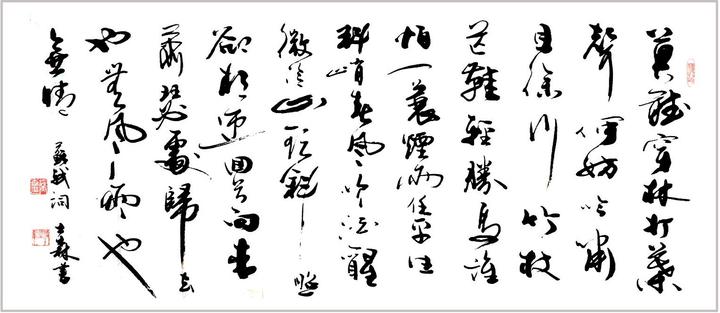 莫聽穿林打葉
聲何妨吟嘯
且徐行竹杖
芒鞋輕勝馬誰
怕一蓑煙雨任平生
料峭春風吹酒醒
微冷山頭斜照
卻相迎回首向來
蕭瑟處歸去
也無風雨也
無晴 蘇軾詞 士森書